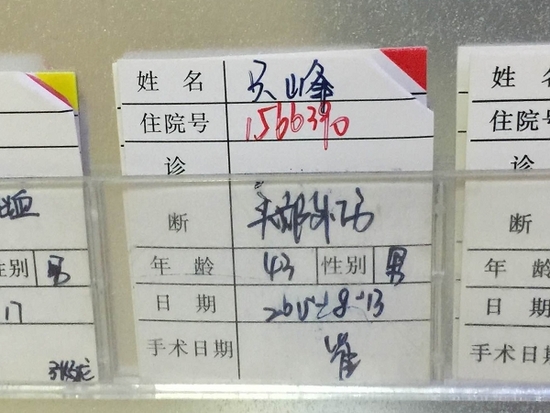 姓 名 吴山峰
住院号 1566390
诊
断 头部外伤
年 龄 43 性别 男
日 期 2015-8-13
手术日期 崔
性别 男
17
姓 名
住院号
诊
断
年 龄
日 期
手术日期